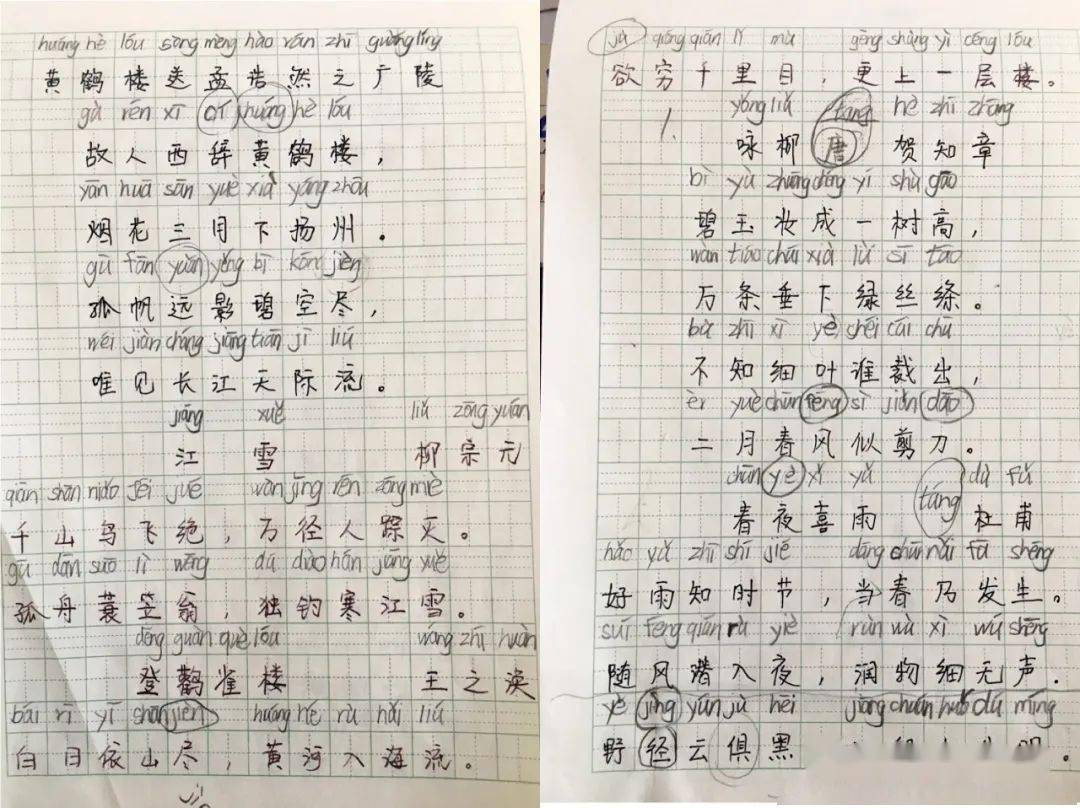 huáng hè lóu sòng mèng hào rán zhī guǎng líng
黄鹤楼送孟浩然之广陵
gù rén xī cí huáng hè lóu
故人西辞黄鹤楼，
yān huā sān yuè xià yáng zhōu
烟花三月下扬州。
gū fān yuǎn yǐng bì kōng jìn
孤帆远影碧空尽，
wéi jiàn cháng jiāng tiān jì liú
唯见长江天际流。
jiāng xuě liǔ zōng yuán
江雪 柳宗元
qiān shān niǎo fēi jué wàn jìng rén zōng miè
千山鸟飞绝，万径人踪灭。
gū dān suō lì wēng dú diào hán jiāng xuě
孤舟蓑笠翁，独钓寒江雪。
dēng guàn què lóu wáng zhī huàn
登鹳雀楼 王之涣
bái rì yī shān jìn huáng hé rù hǎi liú
白日依山尽，黄河入海流。
yù qióng qiān lǐ mù gēng shàng yì céng lóu
欲穷千里目，更上一层楼。
yǒng liǔ táng hè zhī zhāng
咏柳 唐 贺知章
bì yù zhuāng chéng yí shù gāo
碧玉妆成一树高，
wàn tiáo chuí xià lǜ sī tāo
万条垂下绿丝绦。
bù zhī xì yè shéi cái chū
不知细叶谁裁出，
èr yuè chūn fēng sì jiǎn dāo
二月春风似剪刀。
chūn yè xǐ yǔ táng dù fǔ
春夜喜雨 杜甫
hǎo yǔ zhī shí jié dāng chūn nǎi fā shēng
好雨知时节，当春乃发生。
suí fēng qián rù yè rùn wù xì wú shēng
随风潜入夜，润物细无声.
yě jìng yún jù hēi jiāng chuán huǒ dú míng
野径云俱黑